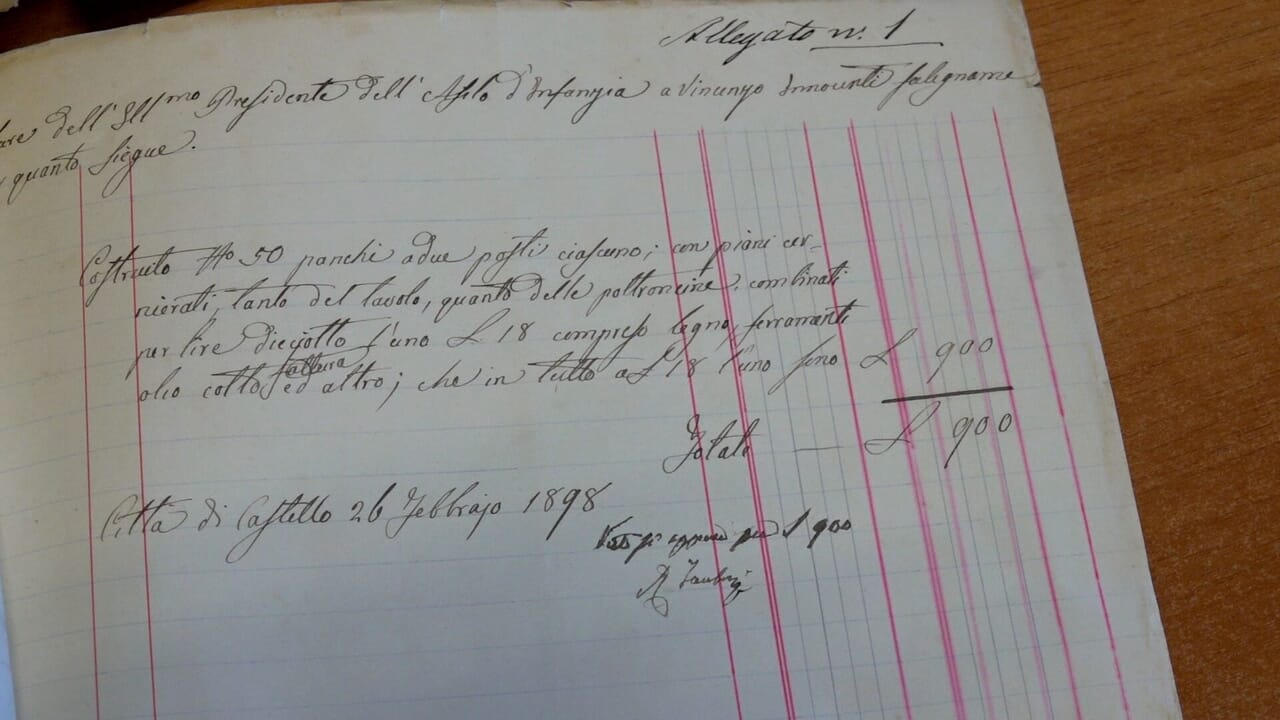 Allegato n. 1
dell' Ill.mo Presidente dell' Asilo d'Infanzia a Vincenzo Innocenti falegname
quanto siegue.
Costruito No 50 panchi a due posti ciascuno; con piani cer-
nierati, tanto del tavolo, quanto delle poltroncine, combinati
per lire diciotto l'uno L 18 compreso legno, ferramenti
fattura
olio cotto, ed altro; che in tutto a L 18 l'uno sono L 900
Totale — L 900
Città di Castello 26 Febbrajo 1898
per L 900